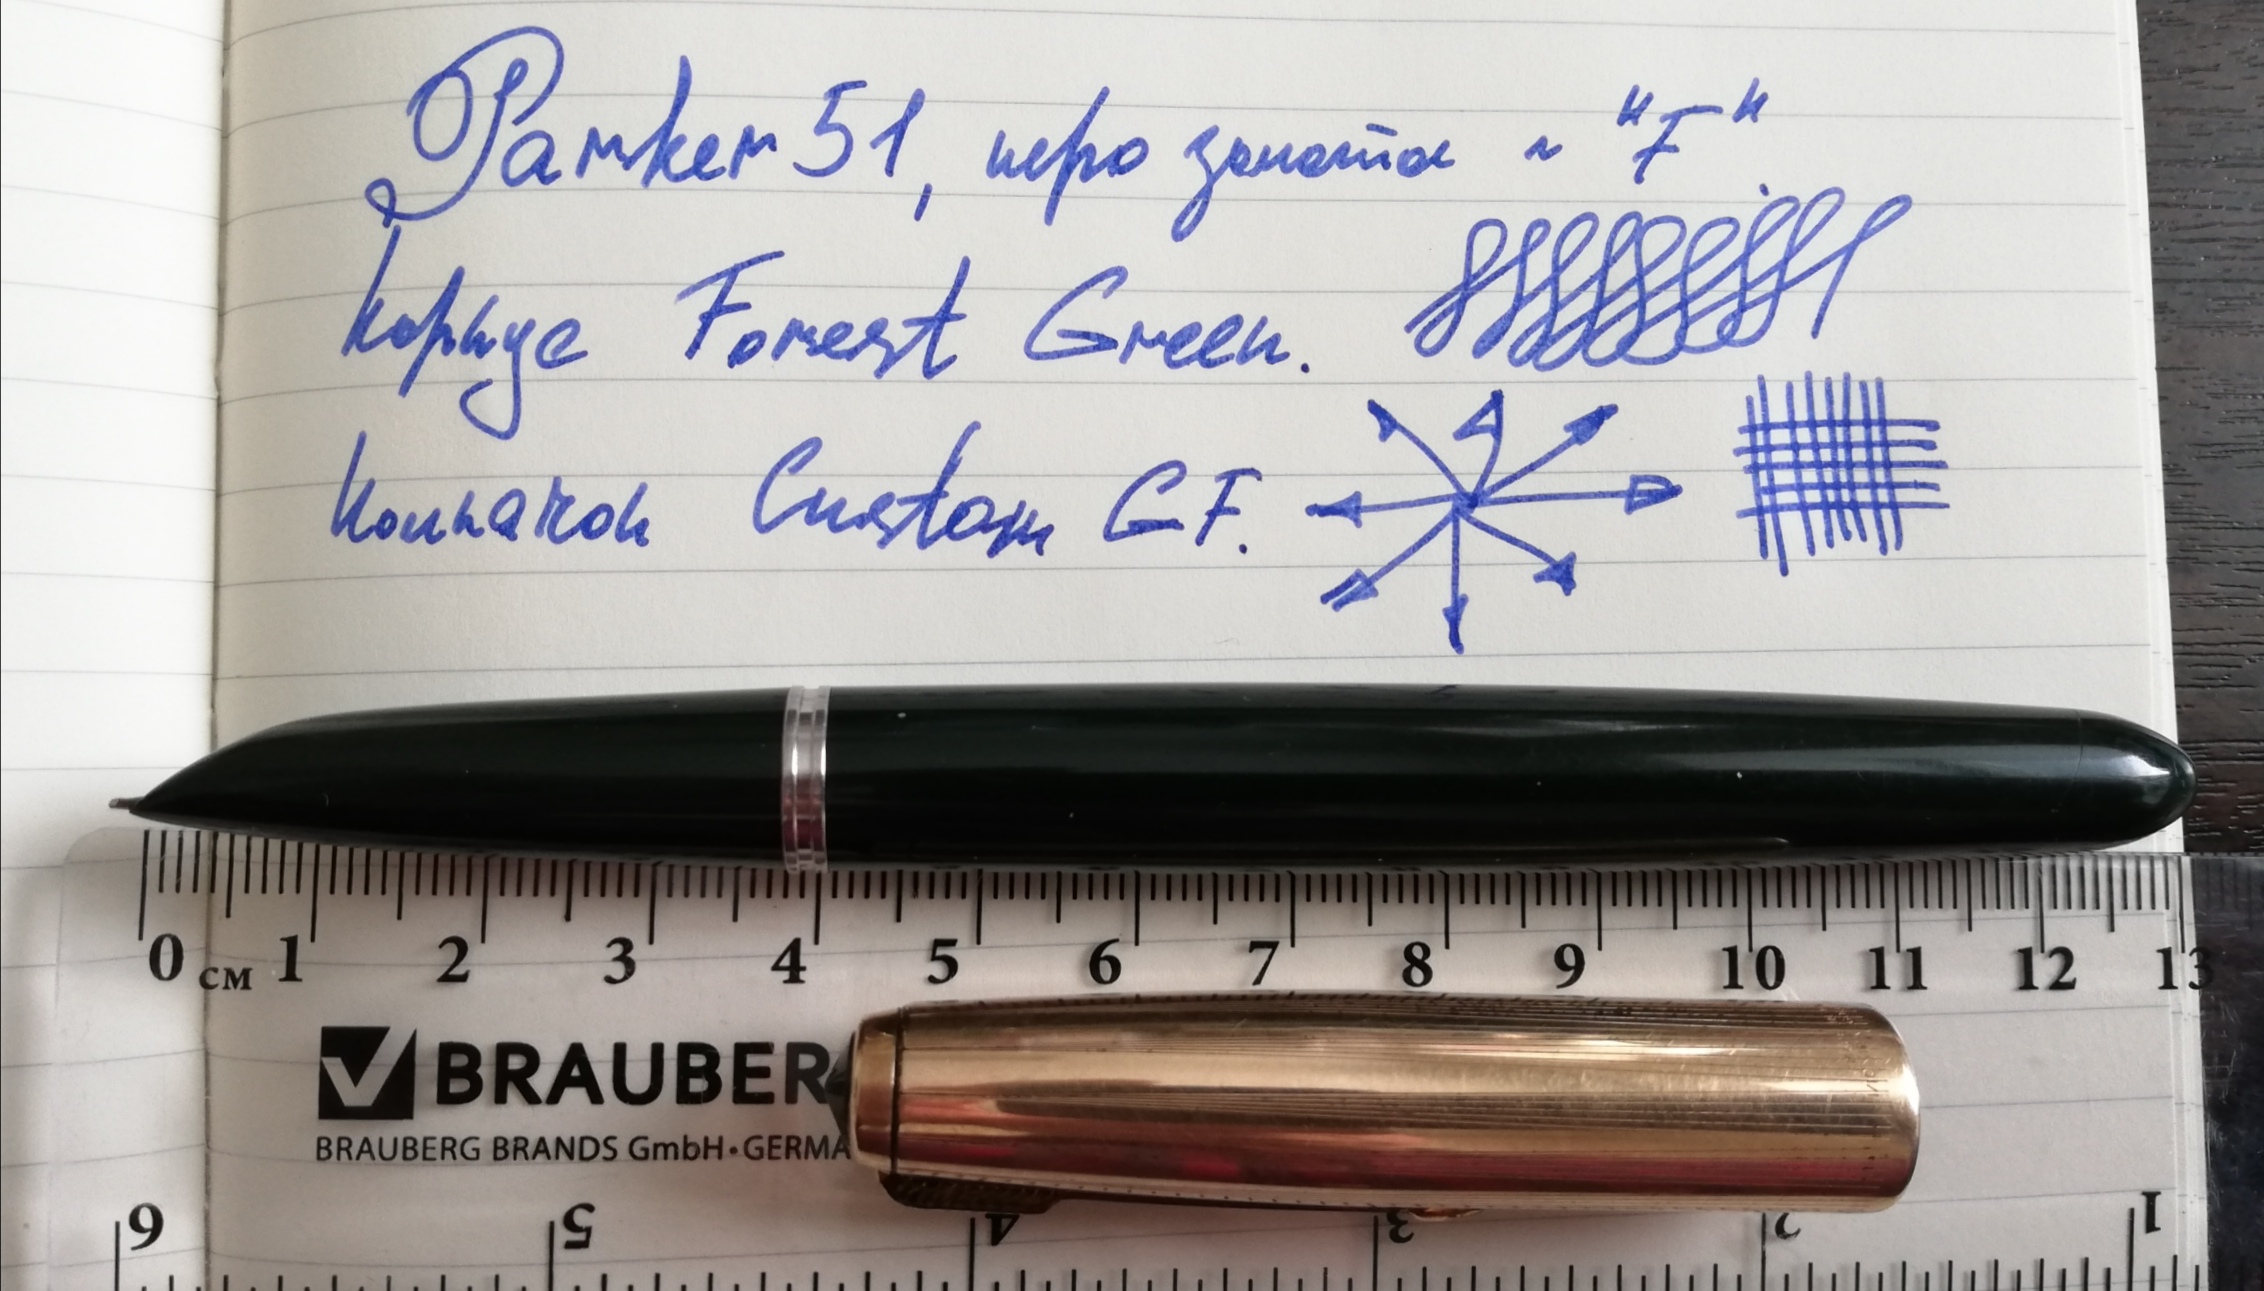 Parker 51, перо золотое ~ "F"
Корпус Forest Green.
Колпачок Custom GF.
0 см 1 2 3 4 5 6 7 8 9 10 11 12 13
BRAUBER
BRAUBERG BRANDS GmbH·GERMA
6 5 4 3 2 1